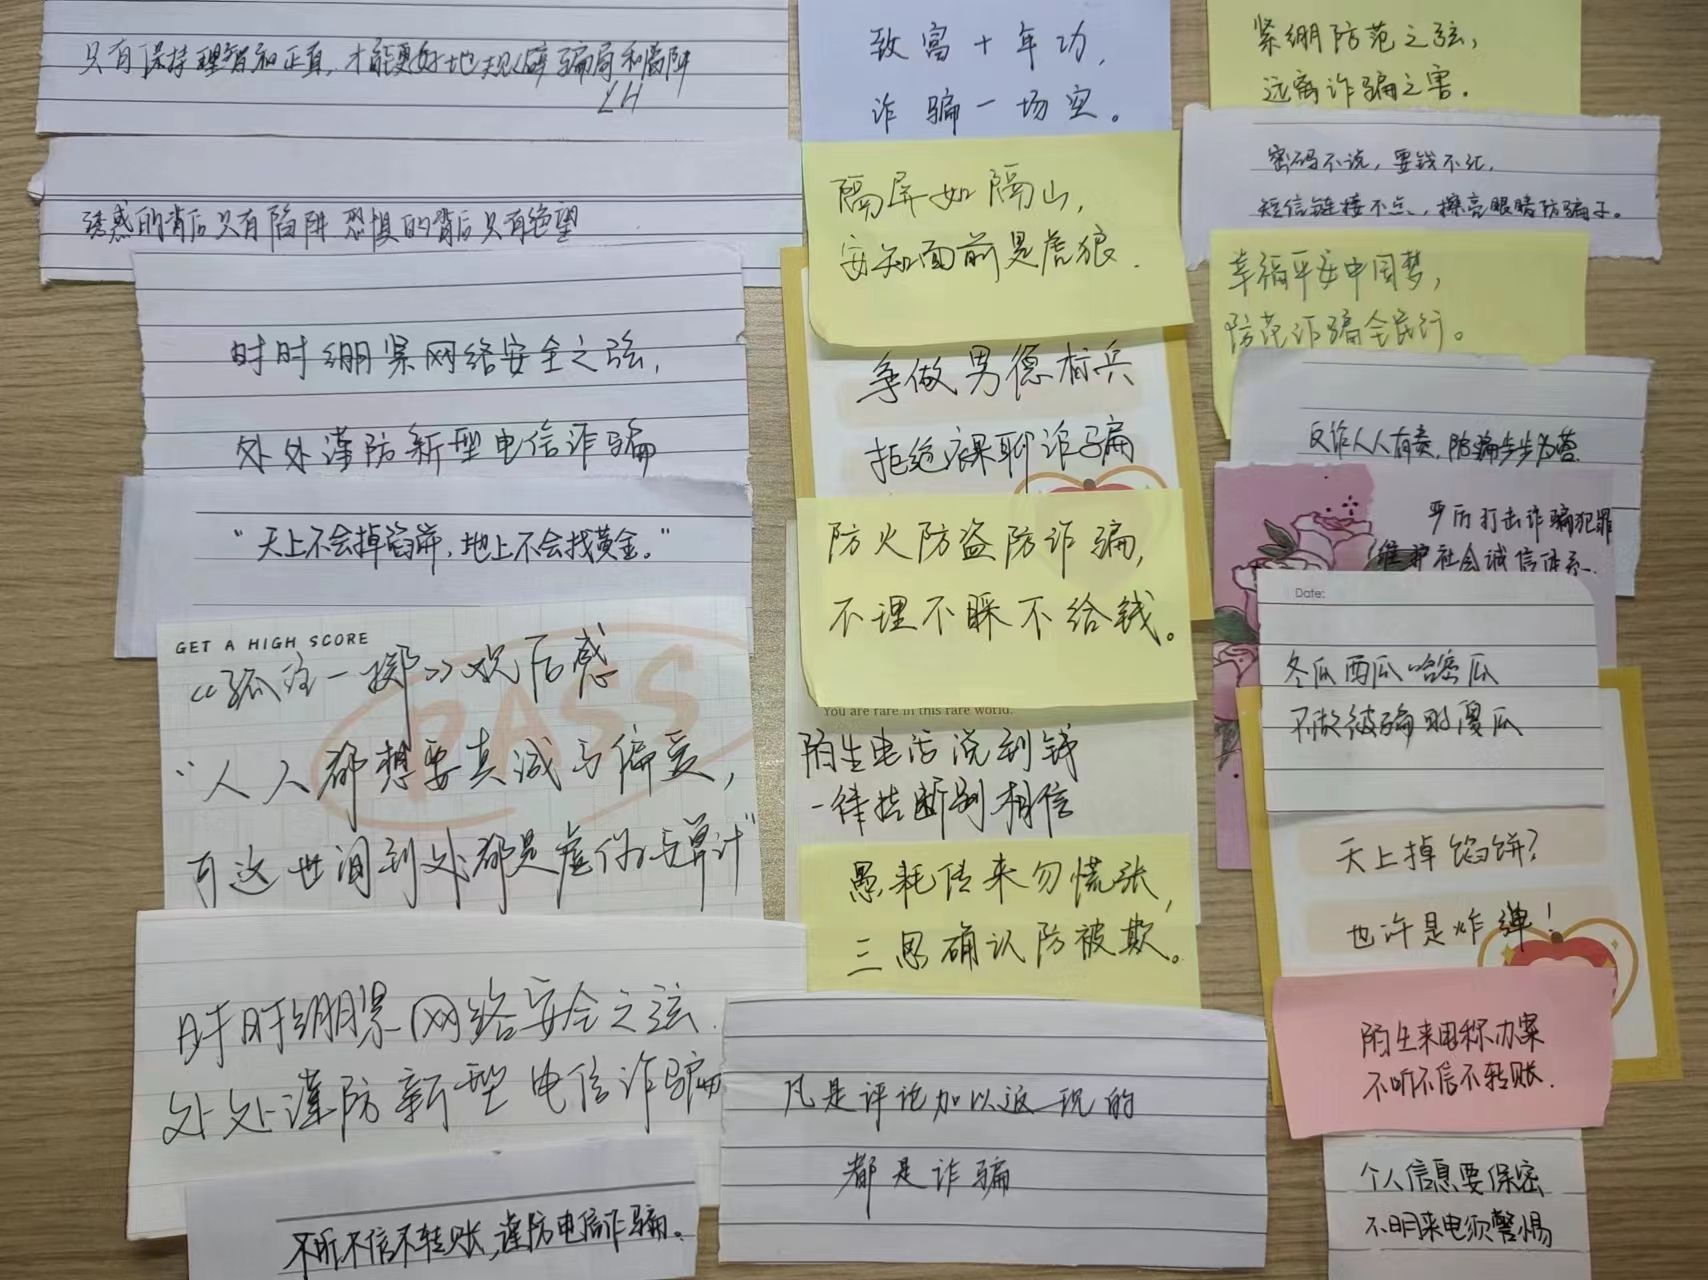 只有保持理智和正直,才能更好地规避骗局和陷阱
LH
诱惑的背后只有陷阱 恐惧的背后只有绝望
时时绷紧网络安全之弦,
处处谨防新型电信诈骗
“天上不会掉馅饼,地上不会找黄金。”
GET A HIGH SCORE
PASS
《孤注一掷》观后感
“人人都想要真诚与偏爱,
可这世间到处都是虚伪与算计”
时时绷紧网络安全之弦.
处处谨防新型电信诈骗
不听不信不转账,谨防电信诈骗。
致富十年功,
诈骗一场空。
隔屏如隔山,
安知面前是虎狼.
争做男德标兵
拒绝裸聊诈骗
防火防盗防诈骗,
不理不睬不给钱。
You are rare in this rare world.
陌生电话说到钱
一律挂断别相信
噩耗传来勿慌张,
三思确认防被欺。
凡是评论加以返现的
都是诈骗
紧绷防范之弦,
远离诈骗之害.
密码不说,要钱不汇,
短信链接不点,擦亮眼睛防骗子。
幸福平安中国梦,
防范诈骗全民行。
反诈人人有责,防骗步步为营.
严厉打击诈骗犯罪
维护社会诚信体系.
Date:
冬瓜西瓜哈密瓜
不做被骗的傻瓜
天上掉馅饼?
也许是炸弹!
陌生来电称办案
不听不信不转账.
个人信息要保密
不明来电须警惕